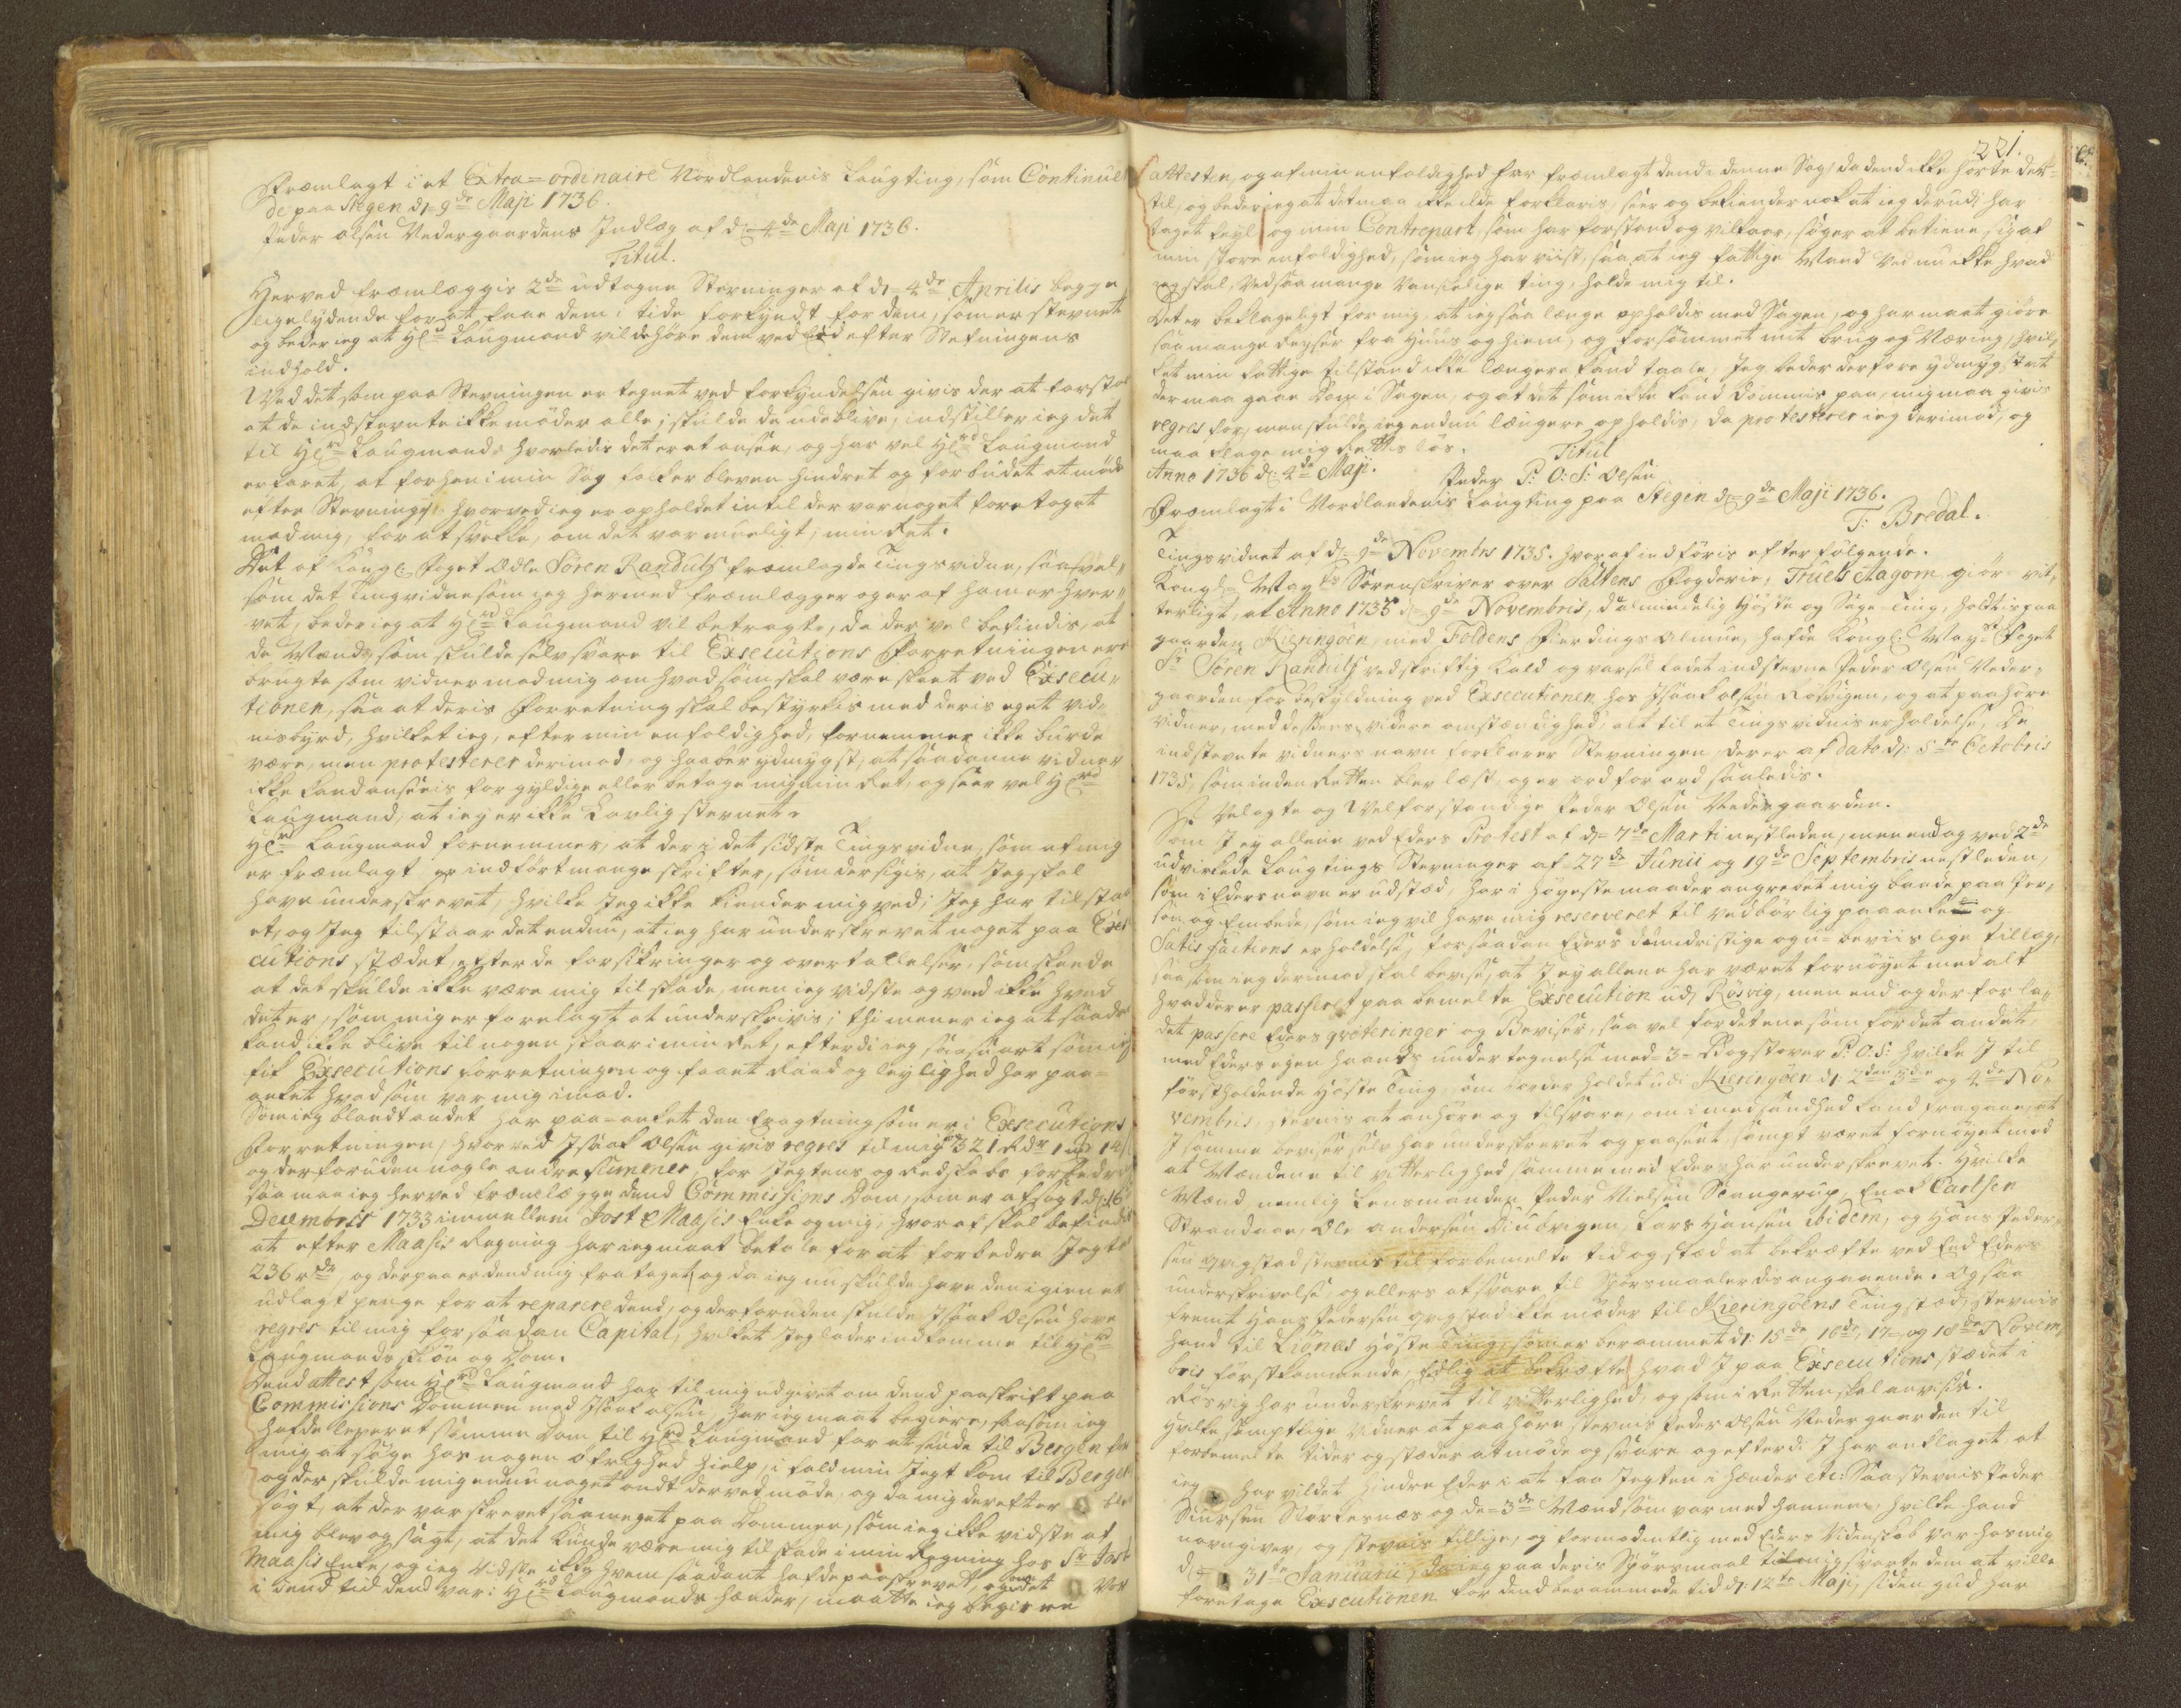 Fræmlagt i et Extra=ordinaire Nordlandenis Laugting, som Continuer
de paa Stegen d= 9de Maji 1736.
Peder olsen Nedergaardens Indlæg af d: 4de Maji 1736.
Titul.
Herved fremlæggis 2de udtagne Stevninger af d= 4de Aprilis begge
ligelydende for at faae dem i tide forkyndt for dem, som er stevnet
og beder ieg at Hr Laugmand vilde høre dem ved Eed efter Stefningens
indhold.
Ved det som paa Stevningen er tegnet ved forkyndelsen givis der at forstaa
at de indstevnte ikke møder alle; skulde de udeblive, indstiller ieg det
til Hr Laugmand, hvorledis det er at ansee, og har vel Hr Laugmand
erfaret, at forhen i min Sag folk er bleven hindret og forbudet at møde
efter Stevning, hvorved ieg er opholdet intil der var noget foretaget
mod mig, for at svekke, om det var mueligt, min Ret.
Det af Kongl: Foget Ædle Sören Randulf fræmlagde Tingsvidne, saavel,,
som det Tingvidne som ieg hermed fræmlegger og er af ham erhver,,
vet, beder ieg at Hr Laugmand vil betragte, da der vel befindis, at
de Mænd, som skulde selv svare til Exsecutions Forretningen ere
brugte som vidner mod mig om hvad som skal være skeet ved Exsecu,,
tionen, saa at deris Forretning skal bestyrkis med deris eget vid,,
nisbyrd, hvilket ieg, efter min enfoldighed, fornemmer ikke burde
være, men protesterer derimod, og haaber ydmygst, at saadanne vidner
ikke kand anseeis for gyldige eller betage mig min Ret, og seer vel Hr
Laugmand, at ieg er ikke Lovlig stevnet.
Hr Laugmand fornemmer, at der i det sidste Tingsvidne, som af mig
er fræmlagt er indført mange skrifter, som der sigis, at Jeg skal
have underskrevet, hvilke Jeg ikke kiender mig ved; Jeg har tilstaa
et, og Jeg tilstaar det endnu, at ieg har underskrevet noget paa Exse
cutions stædet, efter de forsikringer og overtallelser, som skeede
at det skulde ikke være mig til skade, men ieg vidste og veed ikke hvad
det er, som mig er forelagt at underskrivis; thi mener ieg at saadt
kand ikke blive til nogen skaar i min Ret, efterdi ieg saa snart som ieg
fik Exsecutions forretningen og faaet Raad og leylighed har paa=
anket hvad som var mig imod.
Som ieg blandt andet har paa=anket den Eragtning som er i Exsecutions
Forretningen, hvorved Isaak Olsen givis regres til mig 321 Rdr 1 mk 14 s
og der foruden nogle andre summer, for Jegtens og Redskabs forbedr
saa maa ieg herved fræmlægge dend Commissions Dom, som er afsagt d= 16
Decembris 1733 immellem Jost Maasis Enke og mig, hvor af skal befindis
at efter Maasis Regning har ieg maat betale for at forbedre Jegten
236 rdr, og derpaa er dend mig fra taget, og da ieg nu skulde have den igien er
udlagt penge for at reparere dend, og derforuden skulde Isaak Olsen have
regres til mig for saadan Capital, hvilket Jeg lader indkomme til Hr
Laugmands skiøn og Dom.
Dend attest som Hr Laugmand har til mig udgivet om dend paaskrift paa
Commissions Dommen mod Isaak olsen, har ieg maat begiere, saasom ieg
hafde leveret samme Dom til Hr Laugmand for at sende til Bergen for
mig at søge hos nogen øfrighed hielp, i fald min Jegt kom til Bergen
og der skulde mig endnu noget ondt derved møde, og da mig derefter ble
sagt, at der var skrevet saa meget paa Dommen, som ieg ikke vidste af
mig blev og sagt, at det kunde være mig til skade i min Regning hos Sr Jost
Maasis Enke, og ieg vidste ikke hvem saadant hafde paaskrevet, og det var
i dend tid dend var: Hr Laugmands hænder, maatte ieg begiere
221.
attesten, og af min enfoldighed har fræmlagt dend i denne Sag, da dend ikke hørte der=
til, og beder ieg at det maa ikke ilde forklaris, seer og bekiender nok at ieg derudi har
taget feyl, og min Contrepart, som har forstand og vilkaar, søger at betiene sig af
min store enfoldighed, som ieg har viist, saa at ieg fattige Mand ved nu ikke hvad
ieg skal, ved saa mange vanskelige ting, holde mig til.
Det er beklageligt for mig, at ieg saa længe opholdis med Sagen, og har maat giøre
saa mange Reyser fra Huus og hiem, og forsømmet mit brug og Næring, hvil,,
ket min fattige tilstand ikke længere kand taale, Jeg beder derfore ydmygst at
der maa gaae Dom i Sagen, og at det som ikke kand dømmis paa, mig maa givis
regres for, men skulde ieg endnu længere opholdis, da protesterer ieg derimod, og
maa klage mig Rettis løs. Titul
Anno 1736 d: 4de Maji. Peder P: O: S: Olsen
Fræmlagt i Nordlandenis Laugting paa Stegen d= 9de Maji 1736.
T: Bredal.
Tingsvidnet af d= 9de Novembrs 1735. hvor af indføris efterfølgende.
Kongl= Mayts Sorenskriver over Saltens Fogderie, Truels Aagom giør vit,,
terligt, at Anno 1735 d= 9de Novembris, da almindelig Høste og Sage=Ting, holdtis paa
gaarden Kieringöen, med Foldens Fierdings Almue, hafde Kongl: Mayts Foget
Sr Sören Randulf ved skriftlig Kald og varsel ladet indstevne Peder Olsen Neder,,
gaarden for beskyldning ved Exsecutionen hos Isaak olsen Røsvigen, og at paahøre
vidner, med dessens videre omstændighed, alt til et Tingsvidnis erholdelse, De
indstevnte vidners navn forklarer Stevningen, der er af dato d: 5te Octobris
1735, som inden Retten blev læst, og er ord for ord saaledis.
Sr Velagte og Velforstandige Peder Olsen Nedergaarden.
Som I ey allene ved Eders Protest af d= 7de Marti nestleden, men end og ved 2de
udvirkede Laugtings Stevninger af 27de Junii og 19de Septembris nestleden,
som i Eders navn er udstæd, har i høyeste maader angrebet mig baade paa Per,,
son og Embede, som ieg vil have mig reserveret til vedbørlig paaanke og
Satisfactions erholdelse, for saadan Eders dumdristige og u=beviislige tillæg,
saa som ieg derimod skal bevise, at I ey allene har været fornøyet med alt
hvad der er passeret paa bemelte Exsecution udi Røsvig, men end og der forla,,
det passere Eders qviteringer og Beviser, saa vel for det ene som for det andet
med Eders egen haands undertegnelse med =3= Bogstaver P: O: S: hvilke I til
førstholdende Høste Ting, som vorder holdet udi Kieringöen d: 2den 3de og 4de No,,
vembris, stevnis at anhøre og tilsvare, om i med sandhed kand fragaae, at
I samme beviser selv har underskrevet og paaseet, sampt været fornøyet med
at Mændene til vitterlighed samme med Eder har underskrevet. Hvilke
Mænd, nemlig Lensmanden Peder Nielsen Stangerup, Enok Carlsen
Strandaae, Ole Andersen Diubvigen, Lars Hansen ibidem, og Hans Peder,,
sen Myestad stevnis til forbemelte tid og stæd at bekræfte ved Eed Eders
underskrivelse, og ellers at svare til Spørsmaaler dis angaaende. Og saa
fremt Hans Pedersen Myestad ikke møder til Kieringöens Tingstæd, stevnis
hand til Lignes Høste Ting, som er berammet d: 15de, 16de, 17= og 18de Novem,,
bris førstkommende, Edlig at bekræfte, hvad I paa Exsecutions stædet i
Røsvig har underskrevet til vitterlighed, og som i Retten skal anvises.
Hvilke samptlige Vidner at paahøre, stevnis Peder Olsen Nedergaarden til
forbemelte tider og stæder at møde og svare, og efterdi I har anklaget, at
ieg har vildet hindre Eder i at faa Jegten i hænder etc: Saa stevnis Peder
Siursen Storkesnæs og de =3de Mænd som var med hannem, hvilke hand
navngiver, og stevnis tillige, og formodentlig med Eders Videnskab var hos mig
d= 31te Januarii, da ieg paa deris Spørsmaal til mig svarte dem at ville
foretage Exsecutionen for dend berammede tid d: 12te Maji, siden gud har